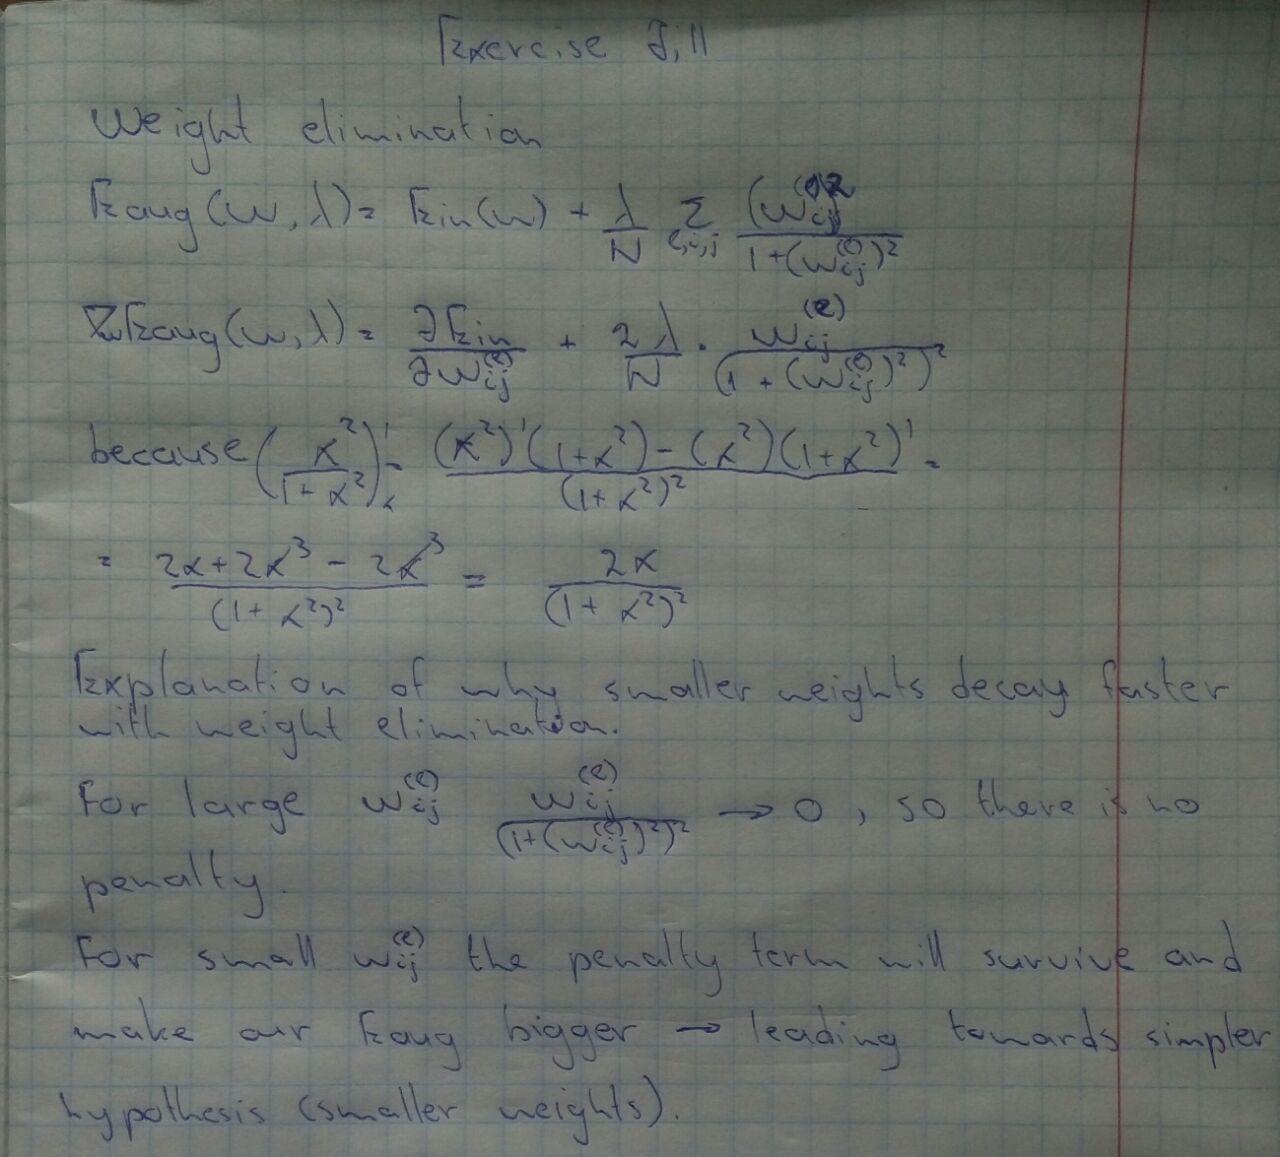 Exercise 7.11
Weight elimination
Eaug(w, λ) = Ein(w) + λ/N Σ_{ℓ,i,j} (w_ij^(ℓ))^2 / (1+(w_ij^(ℓ))^2)
∇_w Eaug(w, λ) = ∂Ein/∂w_ij^(ℓ) + 2λ/N · w_ij^(ℓ) / (1 + (w_ij^(ℓ))^2)^2
because (x^2/(1+x^2))'_x = ((x^2)'(1+x^2) - (x^2)(1+x^2)') / (1+x^2)^2 =
= (2x+2x^3 - 2x^3) / (1+x^2)^2 = 2x / (1+x^2)^2
Explanation of why smaller weights decay faster
with weight elimination.
For large w_ij^(ℓ) w_ij^(ℓ) / (1+(w_ij^(ℓ))^2)^2 → 0, so there is no
penalty.
For small w_ij^(ℓ) the penalty term will survive and
make our Eaug bigger → leading towards simpler
hypothesis (smaller weights).